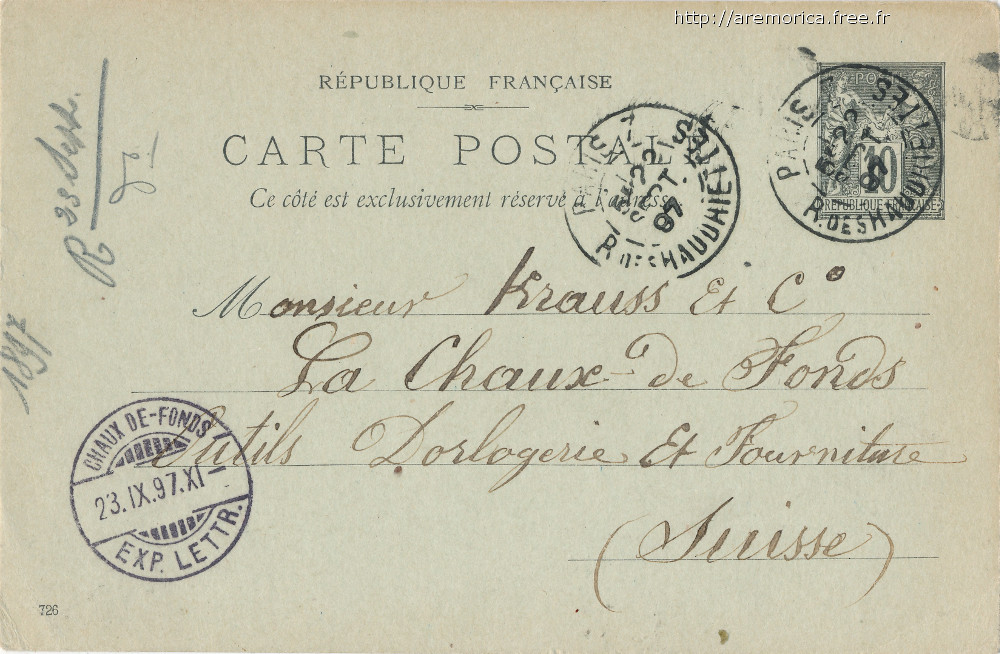 http://aremorica.free.fr
RÉPUBLIQUE FRANÇAISE
CARTE POSTALE
Ce côté est exclusivement réservé à l'adresse
R 23 Sept.
1897
PARIS
22
SEPT
97
R. DES HAUDRIETTES
PARIS
22
97
R. DES HAUDRIETTES
10
REPUBLIQUE FRANÇAISE
Monsieur Krauss Et C°
La Chaux-de Fonds
Outils Dorlogerie Et Fourniture
(Suisse)
CHAUX DE-FONDS
23.IX.97.XI
EXP. LETTR.
726